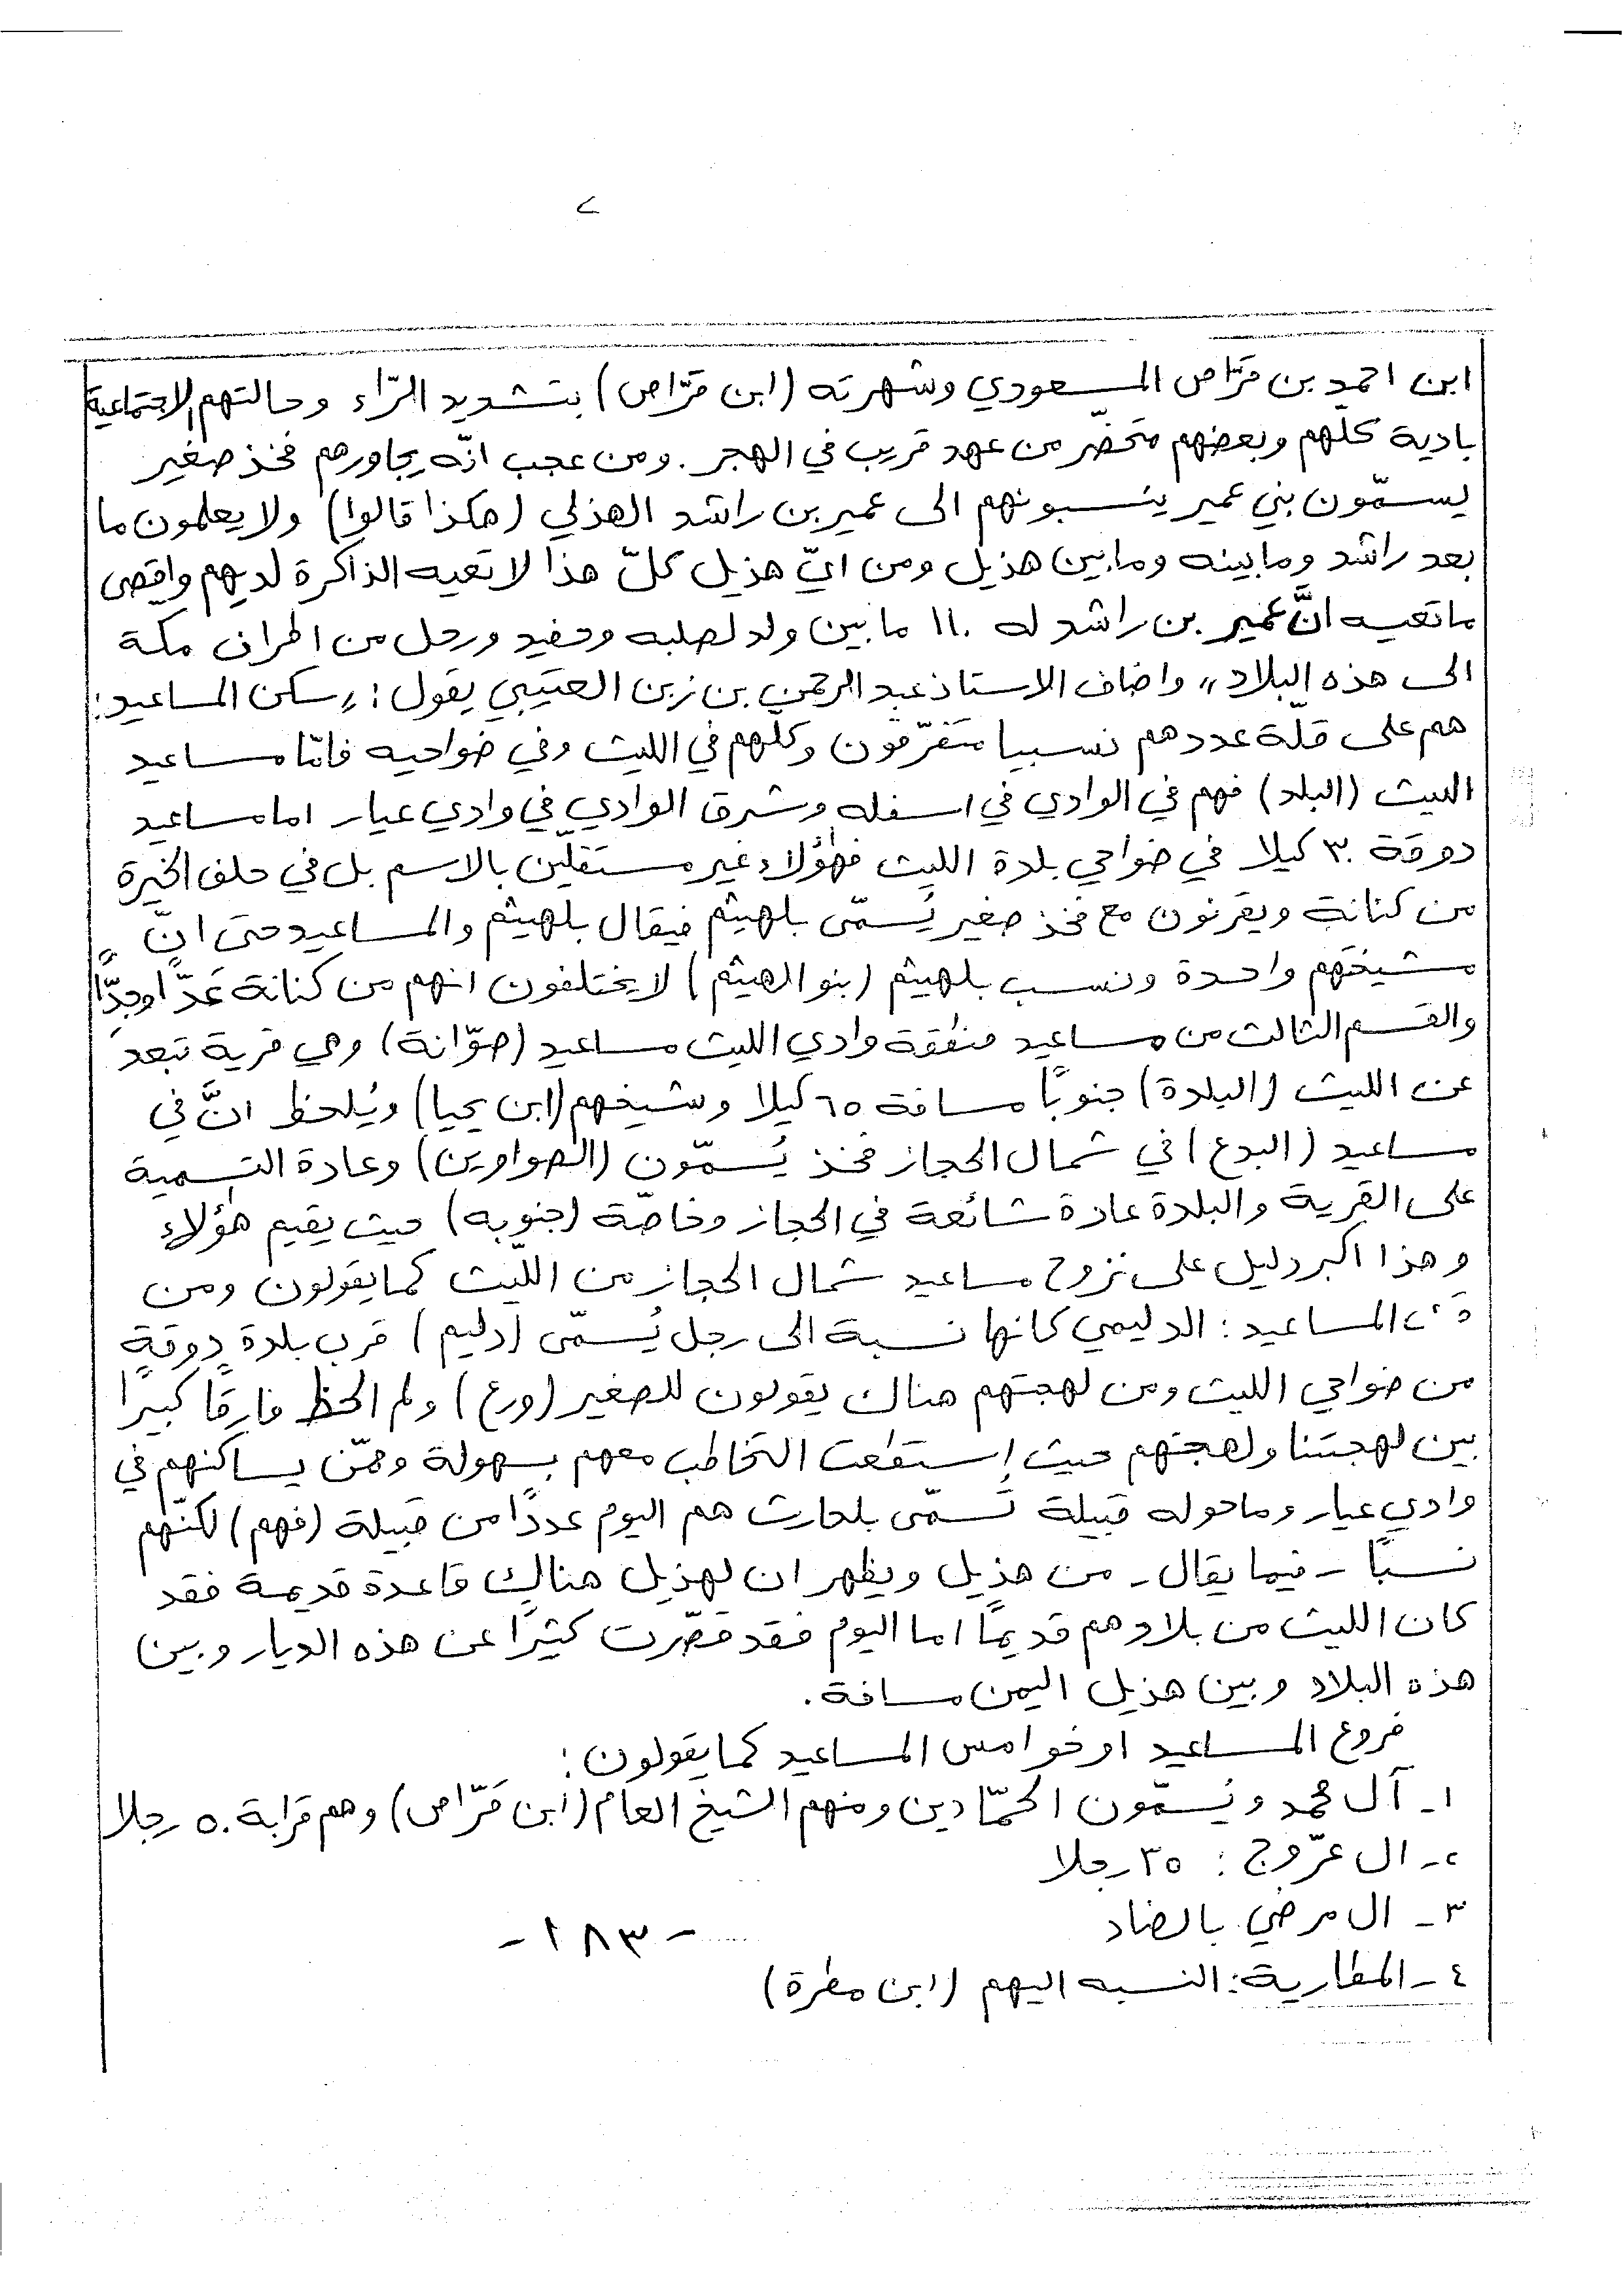 ابن احمد بن قرّاص المسعودي وشهرته (ابن قرّاص) بتشديد الرّاء وحالتهم الاجتماعية
بادية كلّهم وبعضهم متحضّر من عهد قريب في الهجر . ومن عجب انّه يجاورهم فخذ صغير
يسمّون بني عمير ينسبونهم الى عمير بن راشد الهذلي (هكذا قالوا) ولا يعلمون ما
بعد راشد وما بينه وما بين هذيل ومن ايّ هذيل كلّ هذا لا تعيه الذاكرة لديهم واقصى
ما تعيه انَّ عمير بن راشد له ١١٠ ما بين ولد لصلبه وحفيد ورحل من اطراف مكة
الى هذه البلاد ،، واضاف الاستاذ عبد الرحمن بن زبن العتيبي يقول : ,, سكن المساعيد :
هم على قلّة عددهم نسبيا متفرّقون وكلهم في الليث وفي ضواحيه فامّا مساعيد
الليث (البلد) فهم في الوادي في اسفله وشرق الوادي في وادي عيار اما مساعيد
دوقة ٣٠ كيلا في ضواحي بلدة الليث فهؤلاء غير مستقلّين بالاسم بل في حلف الخيرة
من كنانة ويقرنون مع فخذ صغير يُسمّى بلهيثم فيقال بلهيثم والمساعيد حتى انّ
مشيختهم واحدة ونسب بلهيثم (بنو الهيثم) لا يختلفون انهم من كنانة عَدًّا وجدًّا
والقسم الثالث من مساعيد منطقة وادي الليث مساعيد (صوّانة) وهي قرية تبعد
عن الليث (البلدة) جنوبًا مسافة ٦٥ كيلا وشيخهم (ابن يحيا) ويُلحظ انَّ في
مساعيد (البدع) في شمال الحجاز فخذ يُسمّون (الصواوين) وعادة التسمية
على القرية والبلدة عادة شائعة في الحجاز وخاصّة (جنوبه) حيث يقيم هؤلاء
وهذا اكبر دليل على نزوح مساعيد شمال الحجاز من اللّيث كما يقولون ومن
المساعيد : الدليمي كانها نسبة الى رجل يُسمّى (دليم) قرب بلدة دوقة
من ضواحي الليث ومن لهجتهم هناك يقولون للصغير (ورع) ولم الحظ فارقًا كبيرًا
بين لهجتنا ولهجتهم حيث إستطعت التخاطب معهم بسهولة وممّن يساكنهم في
وادي عيار وما حوله قبيلة تُسمّى بلحارث هم اليوم عددًا من قبيلة (فهم) لكنّهم
نسبًا - فيما يقال - من هذيل ويظهر ان لهذيل هناك قاعدة قديمة فقد
كان الليث من بلادهم قديمًا اما اليوم فقد قصّرت كثيرًا عن هذه الديار وبين
هذه البلاد وبين هذيل اليمن مسافة .
فروع المساعيد او خوامس المساعيد كما يقولون :
١- آل محمد ويُسمّون الحمّادين ومنهم الشيخ العام (ابن قرّاص) وهم قرابة ٥٠ رجلا
٢- ال عرّوج : ٣٥ رجلا
٣- ال مرضي بالضاد
- ١٨٣ -
٤- المطارية : النسبه اليهم (ابن مطرة)